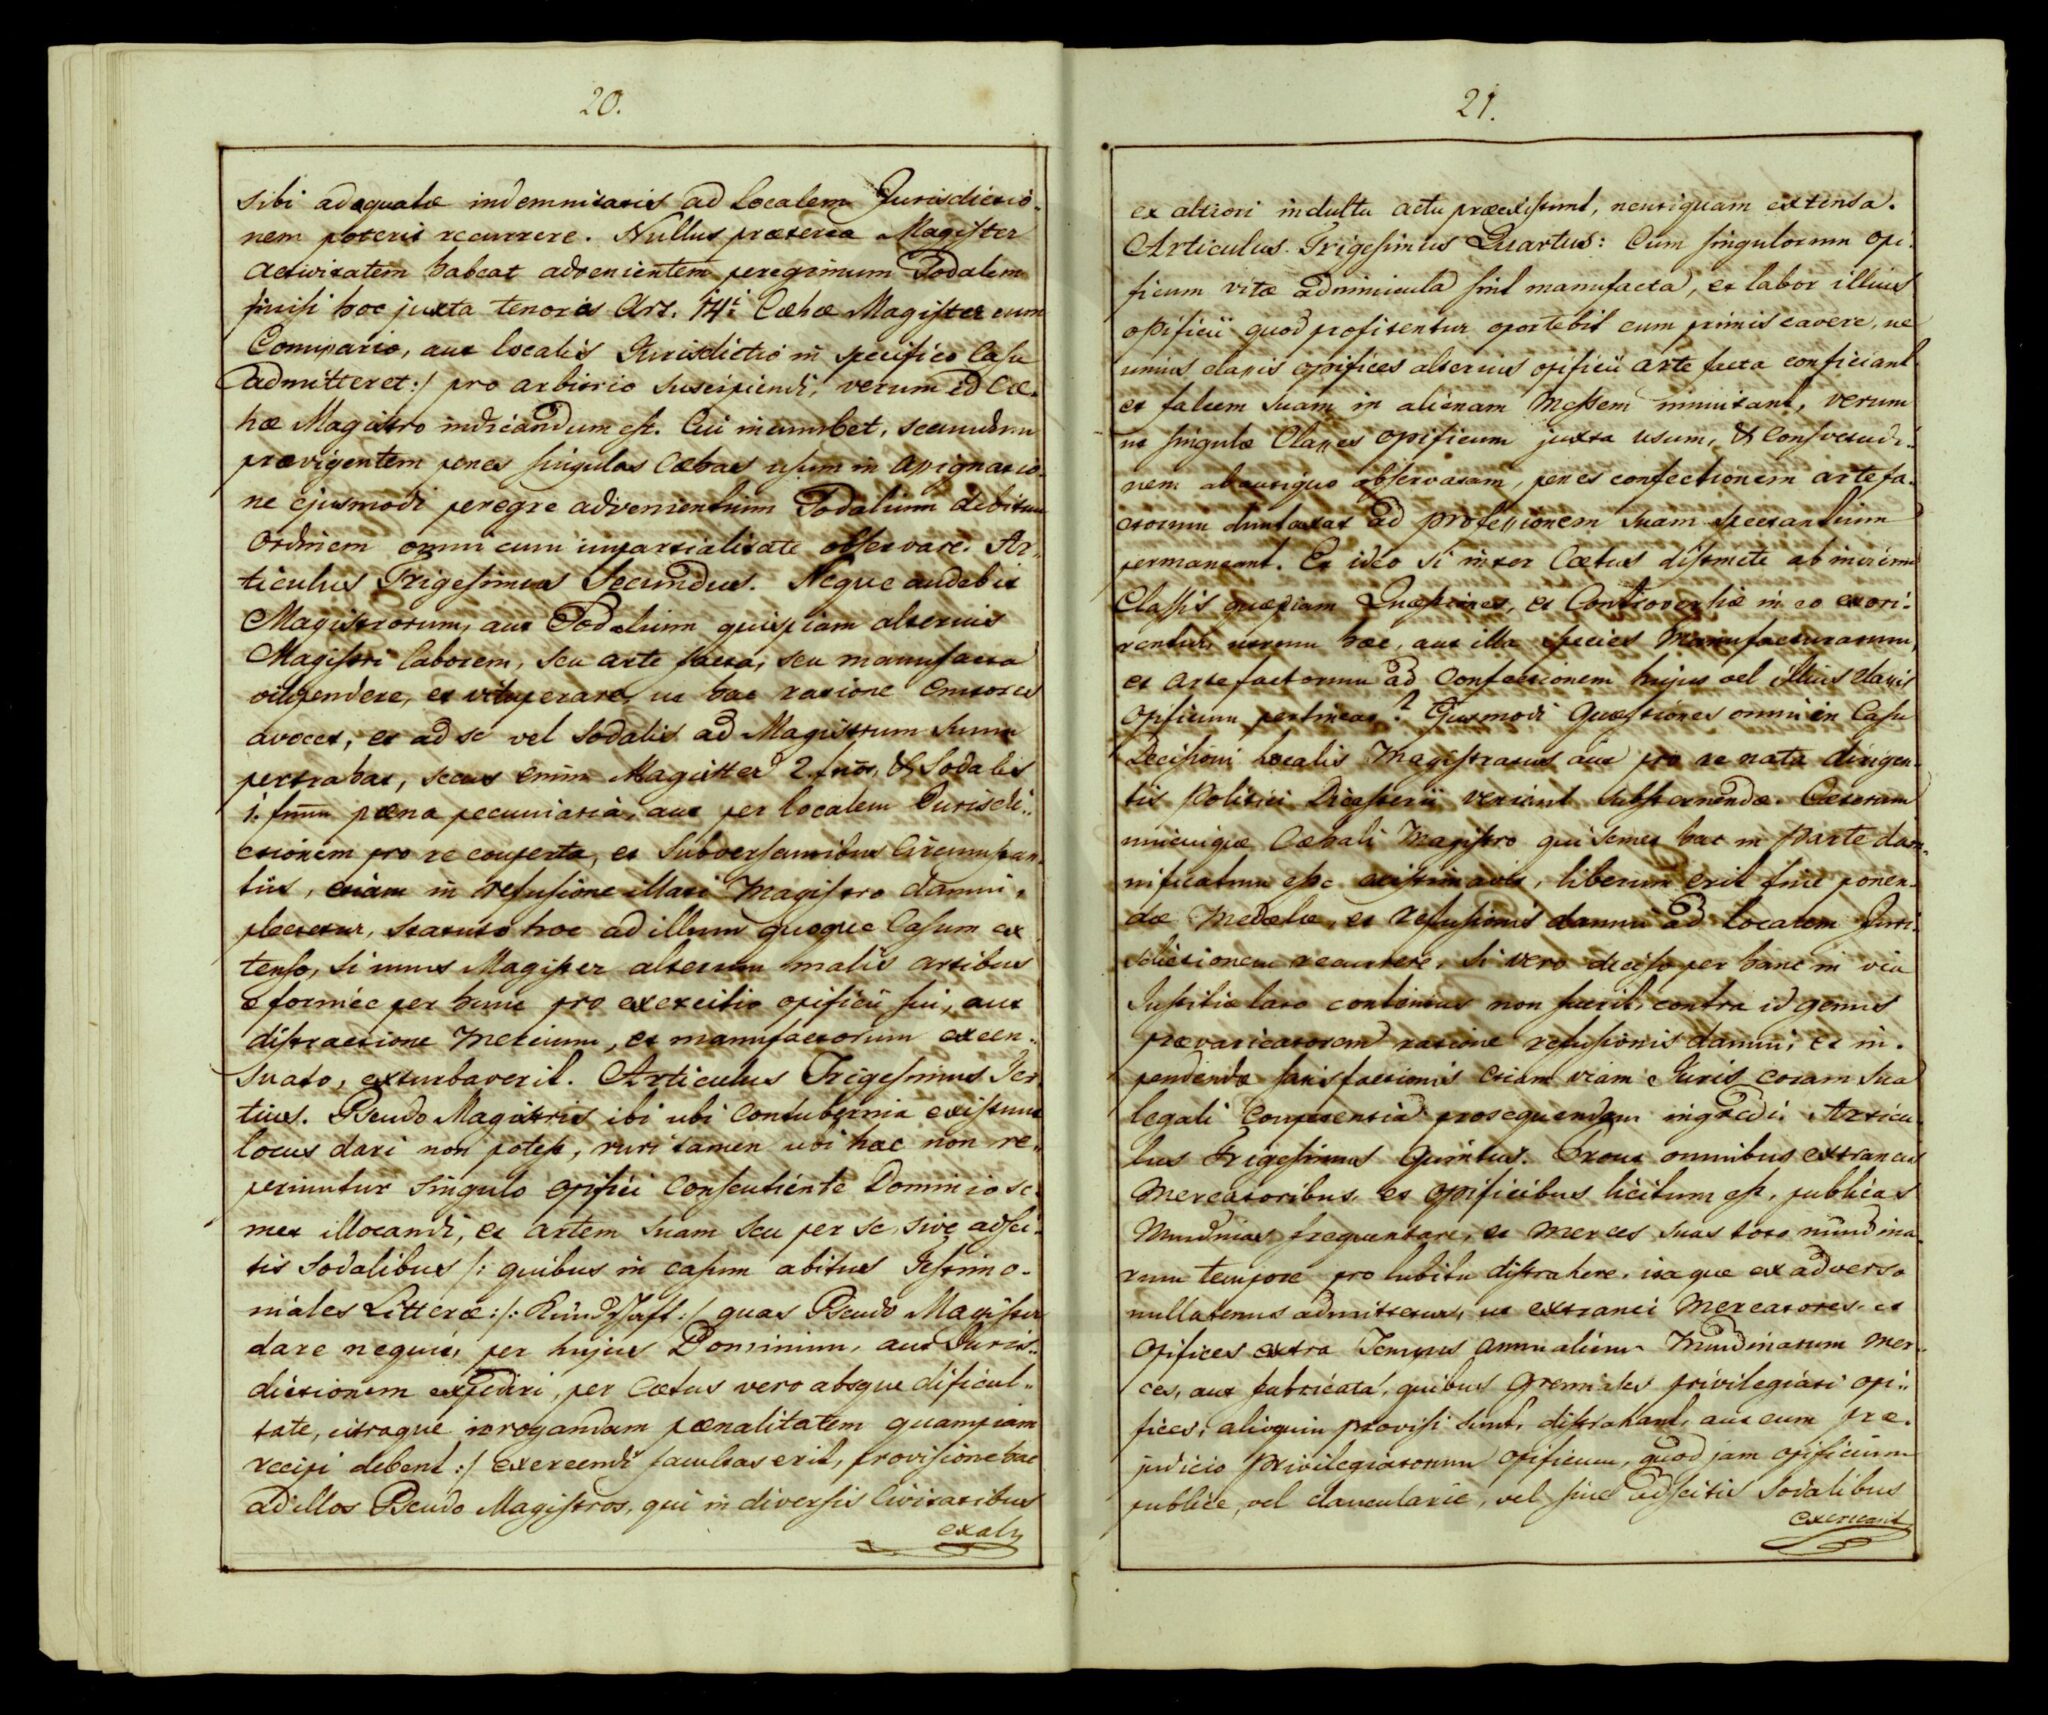 20.
sibi adaequatae indemnitatis ad localem Jurisdictio-
nem poterit recurrere. Nullus praeterea Magister
activitatem habeat advenientem peregrinum Sodalem
/:nisi hoc juxta tenores Art. 14i Caehae Magister cum
Comipario, aut localis Jurisdictio in specifico Casu
admitteret:/ pro arbitrio suscipiendi, verum id Cae-
hae Magistro indicandum est. Cui incumbet, secundum
praevigentem penes singulas Caehas usum in assignatio-
ne ejusmodi peregre advenientium Sodalium debitum
Ordinem omni cum impartialitate observare. Ar-
ticulus Trigesimus Secundus. Neque audebit
Magistrorum, aut Sodalium quispiam alterius
Magistri laborem, seu arte facta, seu manufacta
vilipendere, et vituperare, ut hac ratione Emtores
avocet, et ad se vel Sodalis ad Magistrum suum
pertrahat, secus enim Magister 2. fnos, & Sodalis
1. fnum paena pecuniaria, aut per localem Jurisdi-
ctionem pro re conperta, et subversantibus Circumstan-
tiis, etiam in refusione illati Magistro damni,
plectetur, statuto hoc ad illum quoque Casum ex
tenso, si unus Magister alterum malis artibus
e formiee per hunc pro exercitio opificii sui, aut
distractione Mercium, et manufactorum excen-
suato, exturbaverit. Articulus Trigesimus Ter
tius. Pseudo Magistris ibi ubi Contubernia existunt
locus dari non potest, ruri tamen ubi hac non re-
periuntur singulo opifici Consentiente Dominio se-
met illocandi, et artem suam seu per se, sive adsci-
tis Sodalibus /: quibus in casum abitus Testimo-
niales Litterae:/: Kundschaft:/ quas Pseudo Magister
dare nequit, per hujus Dominium, aut Juris-
dictionem expediri, per Caetus vero absque dificul-
tate, citraque irrogandam paenalitatem quampiam
recipi debent:/ exercendi facultas erit, provisione hac
ad illos Pseudo Magistros, qui in diversis Civitatibus
exalt
21.
ex altiori indultu actu praeexistunt, neutiquam extensa.
Articulus Trigesimus Quartus: Cum singulorum opi-
ficum vitae adminicula sint manufacta, et labor illius
opificii quod profitentur oportebit cum primis cavere, ne
unius classis opifices alterius opificii arte facta conficiant
et falcem suam in alienam Messem immittant, verum
ut singulae Classes opificum juxta usum, & Consvetudi-
nem ab antiquo observatam, penes confectionem artefa-
ctorum duntaxat ad professionem suam spectantium
permaneant. Et ideo si inter Caetus distincte ab invicem
Classis quaepiam Quaestiones, et Controversiae in eo exori-
rentur, utrum haec, aut illa species Manufacturarum,
et artefactorum ad Confectionem hujus vel illius classis
opificum pertineat? Ejusmodi Quaestiones omni in Casu
Decisioni localis Magistratus aut pro re nata dirigen-
tis Politici Dicasterii veniant substernendae. Caeterum
unicuique Caehali Magistro qui semet hac in parte dam-
nificatum esse aestimavit, liberum erit fine ponen-
dae Medelae, et refusionis damni ad localem Juri-
sdictionem recurrere, si vero deciso per hanc in via
Justitiae lato contentus non fuerit, contra id genus
praevaricatorem ratione refusionis damni, et im-
pendendae satisfactionis etiam viam Juris coram sua
legali Conpetentia prosequendam ingredi. Articu-
lus Trigesimus Quintus. Prout omnibus extraneis
Mercatoribus et opificibus licitum est, publicas
Nundinas frequentare, et merces suas toto nundina-
rum tempore pro lubitu distrahere, ita que ex adverso
nullatenus admittetur, ut extranei Mercatores et
opifices extra Tempus annualium Nundinarum Mer-
ces, aut fabricata, quibus Gremiales privilegiati opi-
fices, alioquin provisi sunt, distrahant, aut cum prae-
judicio privilegiatorum opificum, quod jam opificium
publice, vel clanculariae, vel sine adscitis Sodalibus
exerceant